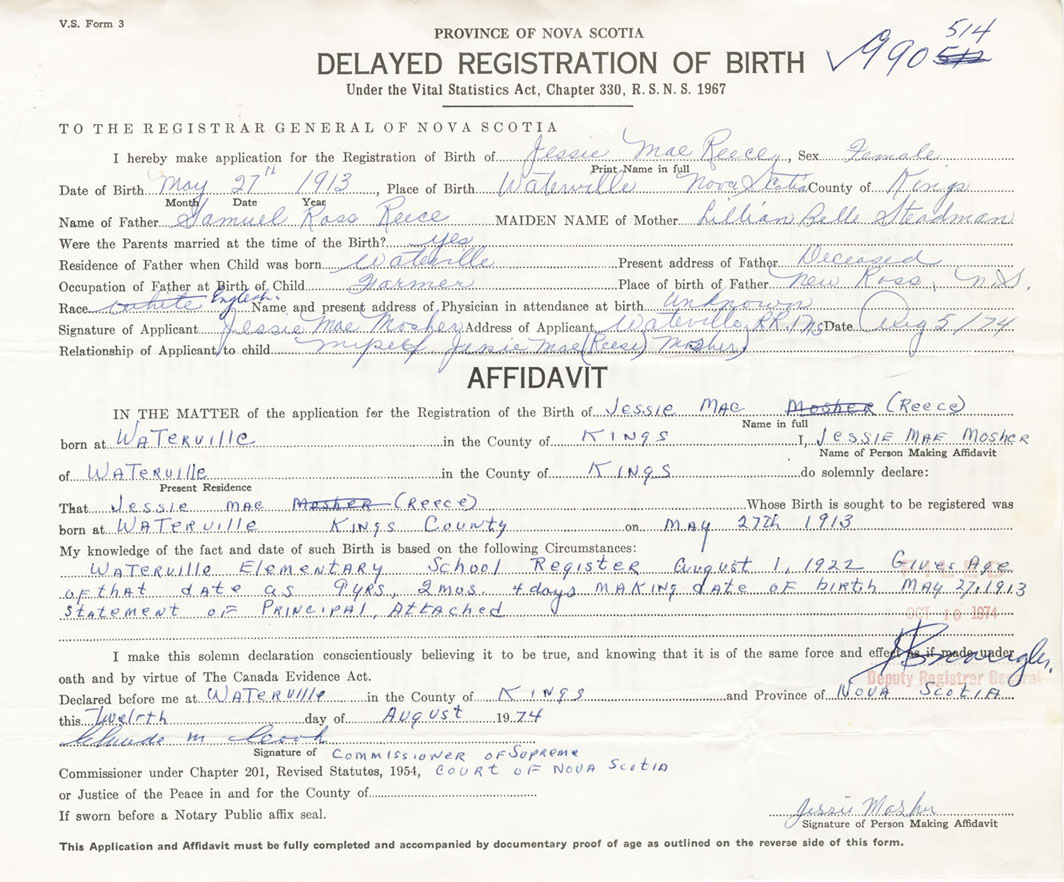 V.S. Form 3
PROVINCE OF NOVA SCOTIA
514
DELAYED REGISTRATION OF BIRTH
990 512
Under the Vital Statistics Act, Chapter 330, R. S. N. S. 1967
TO THE REGISTRAR GENERAL OF NOVA SCOTIA
I hereby make application for the Registration of Birth of Jessie Mae Reece, Sex Female
Print Name in full
Date of Birth May 27th 1913, Place of Birth Waterville Nova Scotia County of Kings
Month Date Year
Name of Father Samuel Ross Reece MAIDEN NAME of Mother Lillian Belle Steadman
Were the Parents married at the time of the Birth? yes
Residence of Father when Child was born Waterville Present address of Father Deceased
Occupation of Father at Birth of Child Farmer Place of birth of Father New Ross, N.S.
Race white English Name and present address of Physician in attendance at birth unknown
Signature of Applicant Jessie Mae Mosher Address of Applicant Waterville RR.1 NS Date Aug 5/74
Relationship of Applicant to child myself Jessie Mae (Reese) Mosher
AFFIDAVIT
IN THE MATTER of the application for the Registration of the Birth of Jessie Mae Mosher (Reece)
Name in full
born at Waterville in the County of Kings I, Jessie Mae Mosher
Name of Person Making Affidavit
of Waterville in the County of Kings do solemnly declare:
Present Residence
That Jessie Mae Mosher (Reece) Whose Birth is sought to be registered was
born at Waterville Kings County on May 27th 1913
My knowledge of the fact and date of such Birth is based on the following Circumstances:
Waterville Elementary School Register August 1, 1922 Gives Age
of that date as 9yrs, 2 mos. 4 days making date of birth May 27, 1913
Statement of Principal, Attached
OCT 10 1974
I make this solemn declaration conscientiously believing it to be true, and knowing that it is of the same force and effect as if made under
oath and by virtue of The Canada Evidence Act.
Deputy Registrar General
Declared before me at Waterville in the County of Kings and Province of Nova Scotia
this Twelfth day of August 19 74
Signature of Commissioner of Supreme
Commissioner under Chapter 201, Revised Statutes, 1954, Court of Nova Scotia
or Justice of the Peace in and for the County of
If sworn before a Notary Public affix seal.
Jessie Mosher
Signature of Person Making Affidavit
This Application and Affidavit must be fully completed and accompanied by documentary proof of age as outlined on the reverse side of this form.